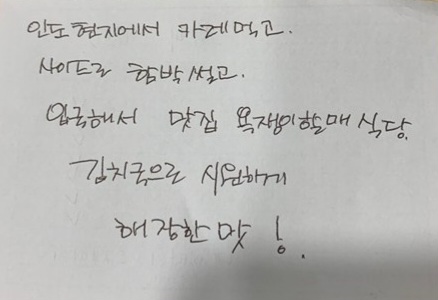 인도 현지에서 카레먹고.
사이드로 함박썰고.
입국해서 맛집 욕쟁이할매 식당.
김치국으로 시원하게
해장한 맛!